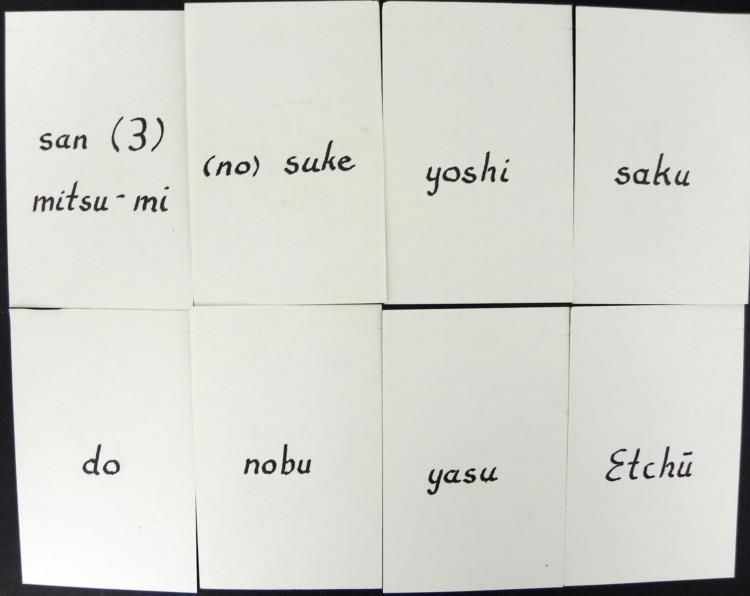 san (3)
mitsu-mi
(no) suke
yoshi
saku
do
nobu
yasu
Etchū